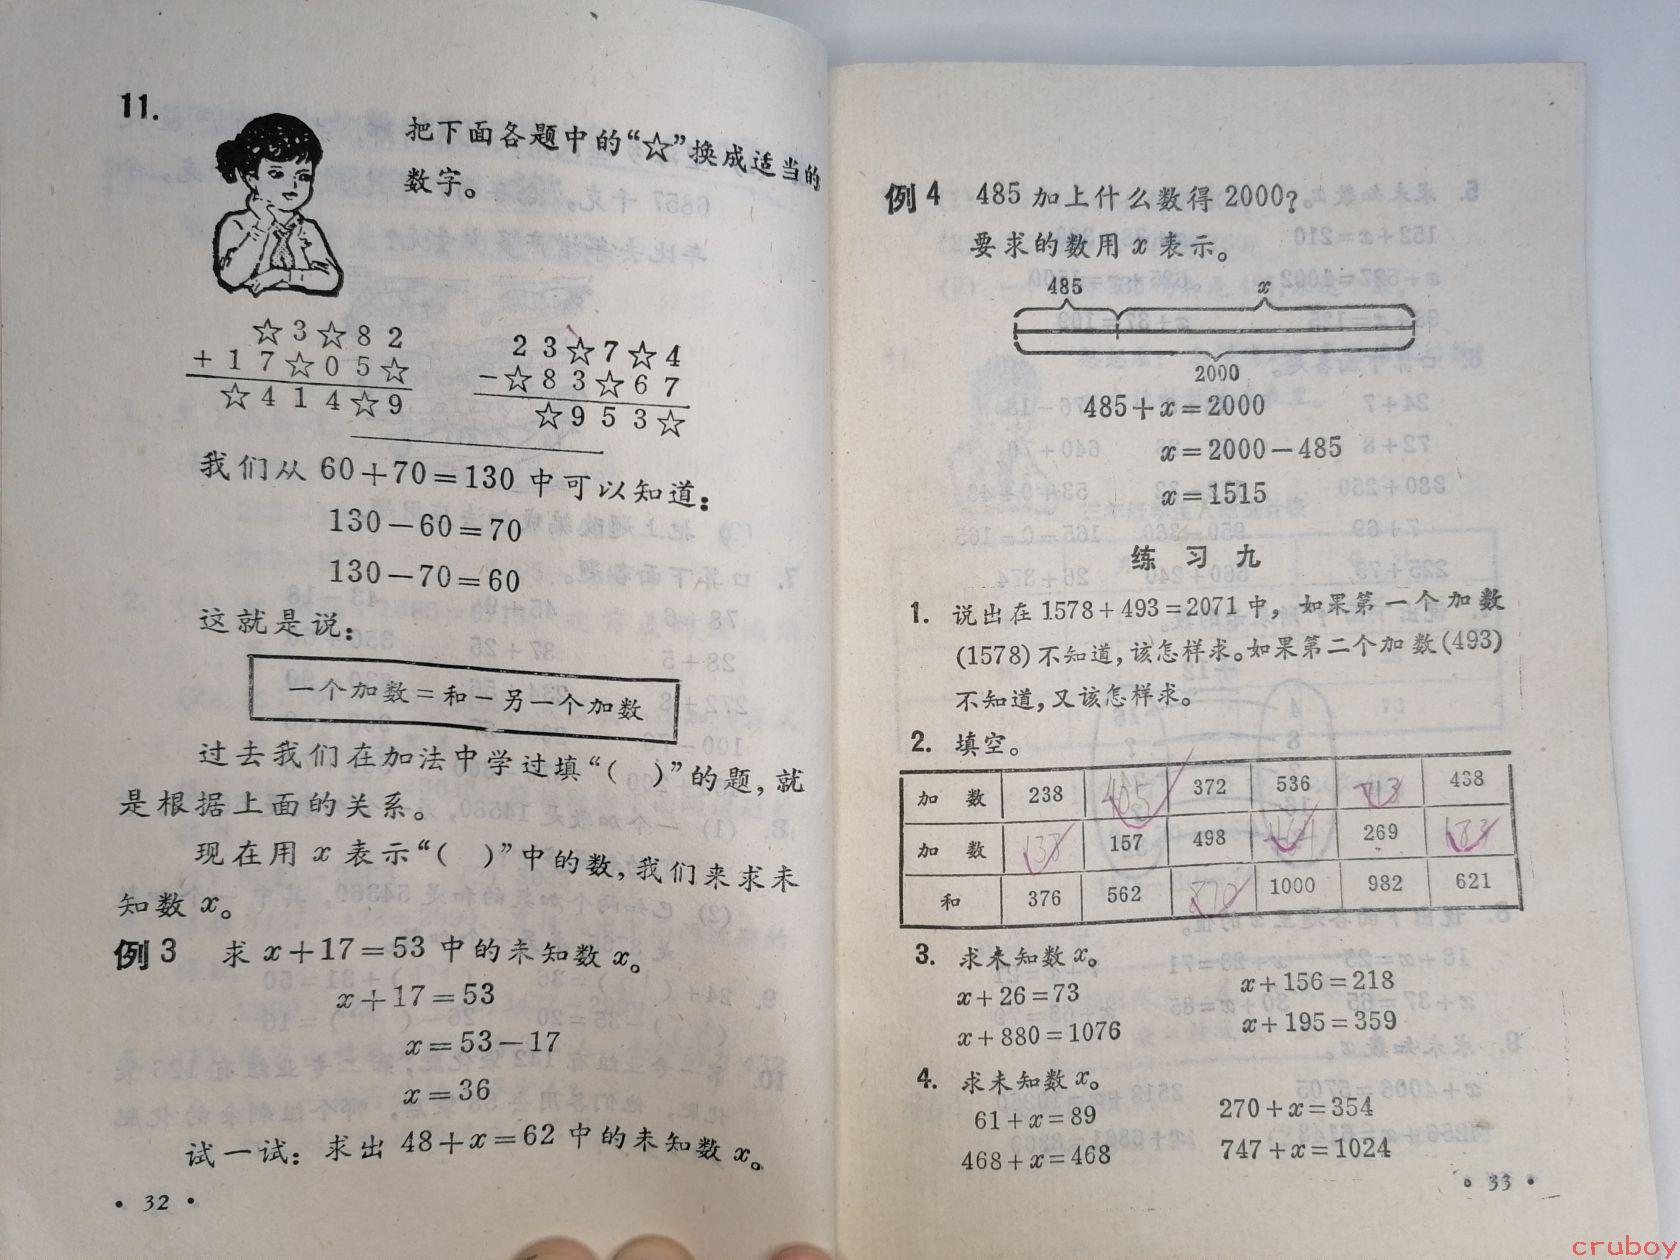 11.
把下面各题中的“☆”换成适当的
数字。
☆3☆82
+17☆05☆
☆414☆9
23☆7☆4
-☆83☆67
☆953☆
我们从 60+70=130 中可以知道：
130-60=70
130-70=60
这就是说：
一个加数=和-另一个加数
过去我们在加法中学过填“( )”的题，就
是根据上面的关系。
现在用 x 表示“( )”中的数，我们来求未
知数 x。
例3 求 x+17=53 中的未知数 x。
x+17=53
x=53-17
x=36
试一试：求出 48+x=62 中的未知数 x。
• 32 •
例4 485 加上什么数得 2000？
要求的数用 x 表示。
485 x
2000
485+x=2000
x=2000-485
x=1515
练 习 九
1. 说出在 1578+493=2071 中，如果第一个加数
(1578)不知道，该怎样求。如果第二个加数(493)
不知道，又该怎样求。
2. 填空。
加 数 238 405 372 536 713 438
加 数 138 157 498 269 183
和 376 562 870 1000 982 621
3. 求未知数 x。
x+26=73 x+156=218
x+880=1076 x+195=359
4. 求未知数 x。
61+x=89 270+x=354
468+x=468 747+x=1024
• 33 •
cruboy